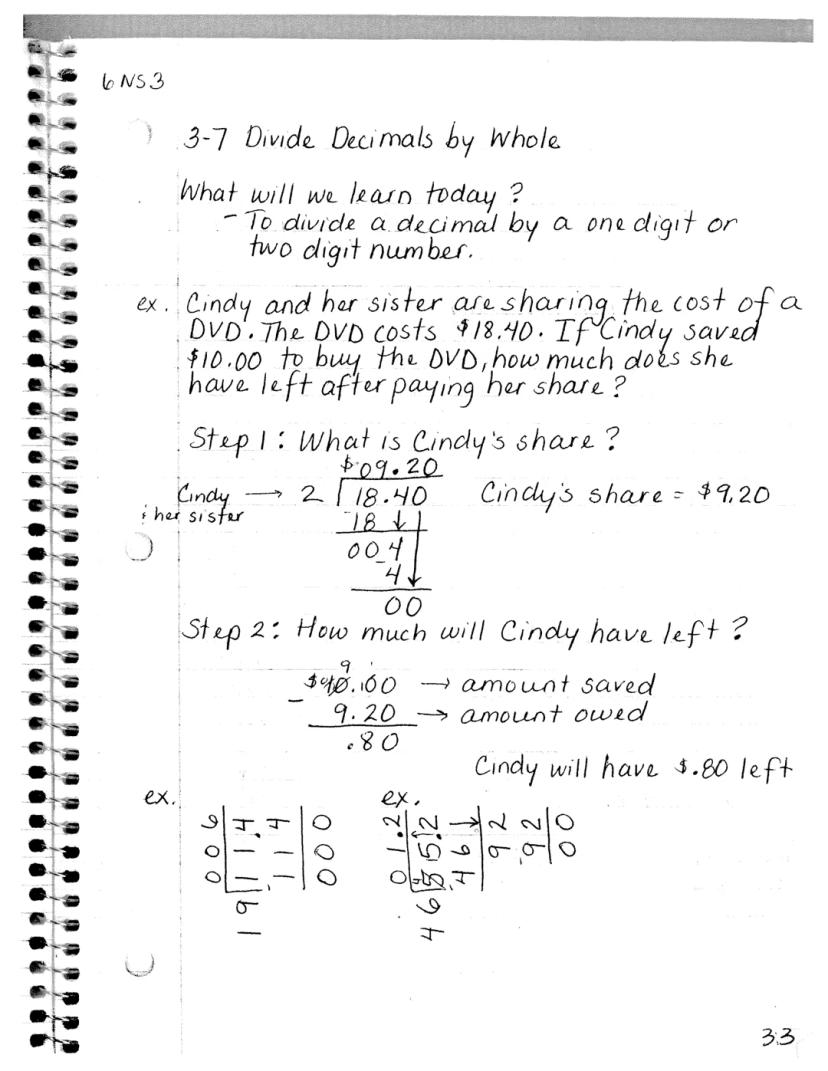 6 NS 3
3-7 Divide Decimals by Whole
What will we learn today?
- To divide a decimal by a one digit or
two digit number.
ex. Cindy and her sister are sharing the cost of a
DVD. The DVD costs $18.40. If Cindy saved
$10.00 to buy the DVD, how much does she
have left after paying her share?
Step 1: What is Cindy's share?
$09.20
Cindy → 2 18.40 Cindy's share = $9.20
& her sister
-18 ↓
004
-4 ↓
00
Step 2: How much will Cindy have left?
9
$10.00 → amount saved
- 9.20 → amount owed
.80
Cindy will have $.80 left
ex.
006
19 11.4
-11 4
000
ex.
01.2
46 55.2
-46 ↓
92
-92
00
33